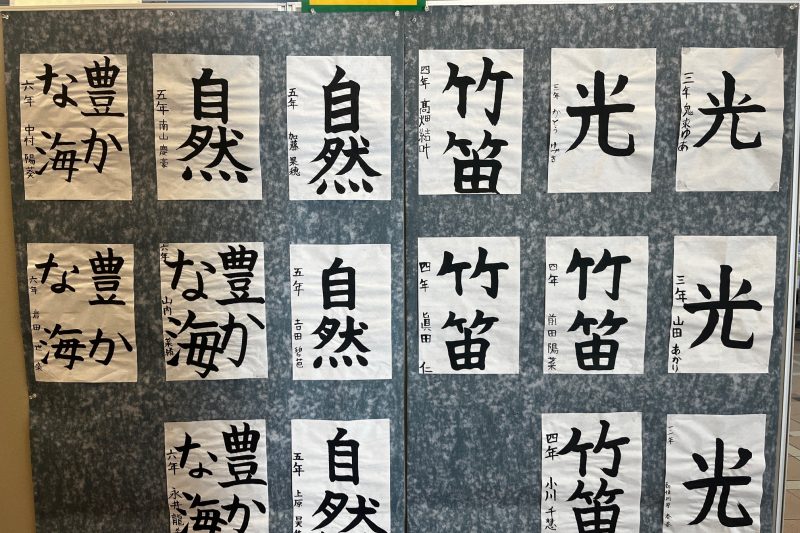 光
三年 鬼炎ゆあ
光
三年 かとう ゆずき
竹笛
四年 髙畑結叶
自然
五年 加藤 果穂
自然
五年 南山 慶豪
豊か
な海
六年 中村 陽葵
光
三年 山田 あかり
竹笛
四年 前田 陽菜
竹笛
四年 眞田 仁
自然
五年 吉田 碧芭
豊か
な海
六年 山内
豊か
な海
六年 岩田
光
三年
竹笛
四年 小川 千慧
自然
五年 上原
豊か
な海
六年 永井龍